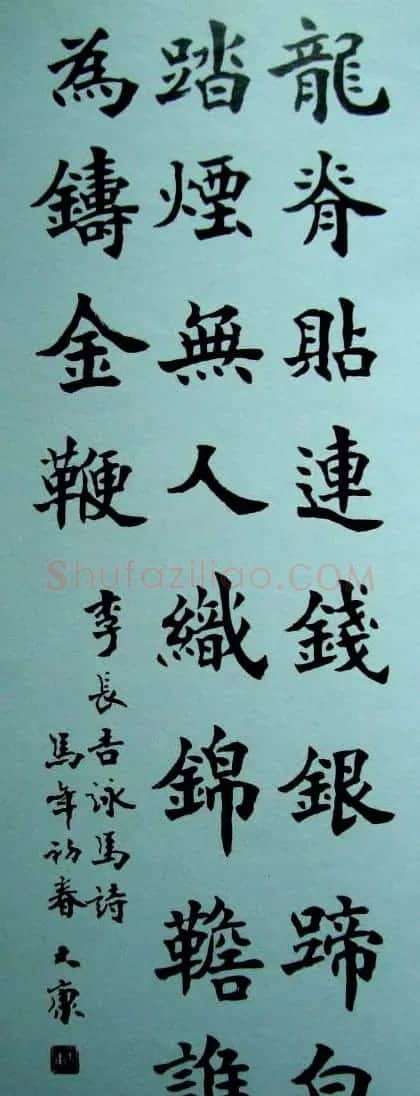 龍脊貼連錢銀蹄白
踏煙無人織錦韂誰
為鑄金鞭
李長吉詠馬詩
馬年初春 大康
Shufaziliao.COM